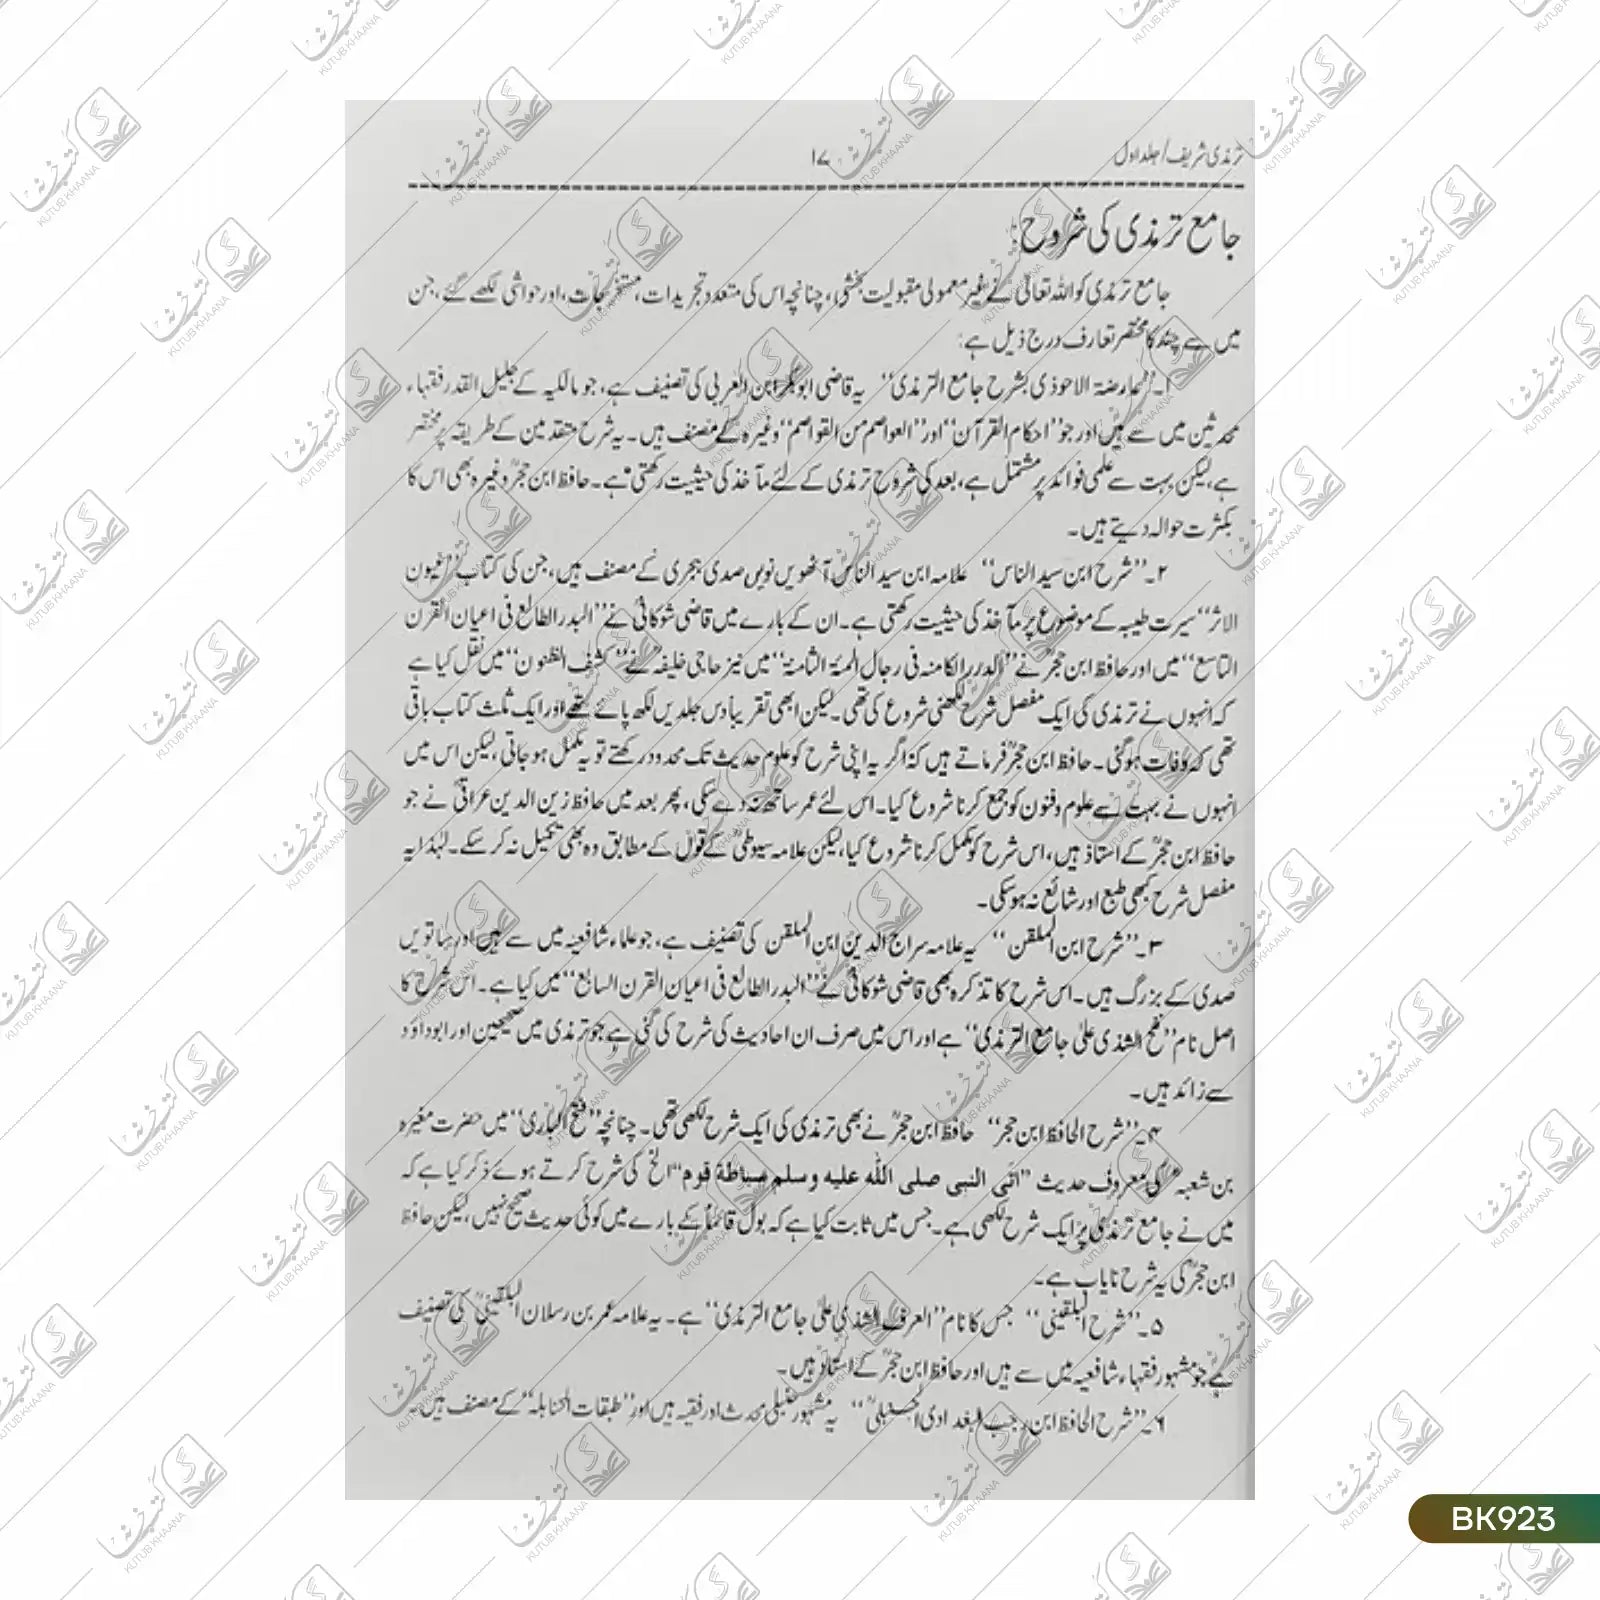 ترمذی شریف/جلد اول ۱۷
جامع ترمذی کی شروح:
جامع ترمذی کو اللہ تعالیٰ نے غیر معمولی مقبولیت بخشی، چنانچہ اس کی متعدد تجریدات، مستخرجات، اور حواشی لکھے گئے، جن
میں سے چند کا مختصر تعارف درج ذیل ہے:
۱۔"عارضۃ الاحوذی بشرح جامع الترمذی" یہ قاضی ابوبکر ابن العربی کی تصنیف ہے، جو مالکیہ کے جلیل القدر فقہاء،
محدثین میں سے ہیں اور جو "احکام القرآن" اور "العواصم من القواصم" وغیرہ کے مصنف ہیں۔ یہ شرح متقدمین کے طریقہ پر مختصر
ہے، لیکن بہت سے علمی فوائد پر مشتمل ہے، بعد کی شروح ترمذی کے لئے مآخذ کی حیثیت رکھتی ہے۔ حافظ ابن حجرؒ وغیرہ بھی اس کا
بکثرت حوالہ دیتے ہیں۔
۲۔"شرح ابن سید الناس" علامہ ابن سید الناس آٹھویں نویں صدی ہجری کے مصنف ہیں، جن کی کتاب "عیون
الاثر" سیرت طیبہ کے موضوع پر مآخذ کی حیثیت رکھتی ہے۔ ان کے بارے میں قاضی شوکانیؒ نے "البدر الطالع فی اعیان القرن
التاسع" میں اور حافظ ابن حجرؒ نے "الدرر الکامنہ فی رجال المئۃ الثامنۃ" میں نیز حاجی خلیفہ نے "کشف الظنون" میں نقل کیا ہے
کہ انہوں نے ترمذی کی ایک مفصل شرح لکھنی شروع کی تھی۔ لیکن ابھی تقریباً دس جلدیں لکھ پائے تھے اور ایک ثلث کتاب باقی
تھی کہ وفات ہوگئی۔ حافظ ابن حجرؒ فرماتے ہیں کہ اگر یہ اپنی شرح کو علوم حدیث تک محدود رکھتے تو یہ مکمل ہو جاتی، لیکن اس میں
انہوں نے بہت سے علوم و فنون کو جمع کرنا شروع کیا۔ اس لئے عمر ساتھ نہ دے سکی، پھر بعد میں حافظ زین الدین عراقیؒ نے جو
حافظ ابن حجرؒ کے استاذ ہیں، اس شرح کو مکمل کرنا شروع کیا، لیکن علامہ سیوطیؒ کے قول کے مطابق وہ بھی تکمیل نہ کر سکے۔ لہٰذا یہ
مفصل شرح کبھی طبع اور شائع نہ ہوسکی۔
۳۔"شرح ابن الملقن" یہ علامہ سراج الدین ابن الملقن کی تصنیف ہے، جو علماء شافعیہ میں سے ہیں اور ساتویں
صدی کے بزرگ ہیں۔ اس شرح کا تذکرہ بھی قاضی شوکانیؒ نے "البدر الطالع فی اعیان القرن السابع" میں کیا ہے۔ اس شرح کا
اصل نام "نفح الشذی علیٰ جامع الترمذی" ہے اور اس میں صرف ان احادیث کی شرح کی گئی ہے جو ترمذی میں صحیحین اور ابوداؤد
سے زائد ہیں۔
۴۔"شرح الحافظ ابن حجر" حافظ ابن حجرؒ نے بھی ترمذی کی ایک شرح لکھی تھی۔ چنانچہ "فتح الباری" میں حضرت مغیرہ
بن شعبہؓ کی معروف حدیث "اتی النبی صلی اللہ علیہ وسلم سباطۃ قوم" الخ کی شرح کرتے ہوے ذکر کیا ہے کہ
میں نے جامع ترمذی پر ایک شرح لکھی ہے۔ جس میں ثابت کیا ہے کہ بول قائماً کے بارے میں کوئی حدیث صحیح نہیں، لیکن حافظ
ابن حجرؒ کی یہ شرح نایاب ہے۔
۵۔"شرح البلقینی" جس کا نام "العرف الشذی علیٰ جامع الترمذی" ہے۔ یہ علامہ عمر بن رسلان البلقینیؒ کی تصنیف
ہے جو مشہور فقہاء شافعیہ میں سے ہیں اور حافظ ابن حجرؒ کے استاذ ہیں۔
۶۔"شرح الحافظ ابن رجب البغدادی الحنبلیؒ" یہ مشہور حنبلی محدث اور فقیہ ہیں اور "طبقات الحنابلہ" کے مصنف ہیں۔
کتب خانہ
KUTUB KHAANA
BK923